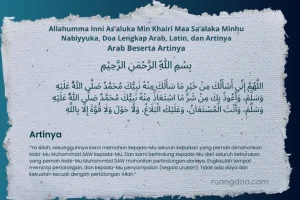 Allahumma Inni As'aluka Min Khairi Maa Sa'alaka Minhu
Nabiyyuka, Doa Lengkap Arab, Latin, dan Artinya
Arab Beserta Artinya
بِسْمِ اللَّهِ الرَّحْمَنِ الرَّحِيْمِ
اللَّهُمَّ إِنِّي أَسْأَلُكَ مِنْ خَيْرِ مَا سَأَلَكَ مِنْهُ نَبِيُّكَ مُحَمَّدٌ صَلَّى اللَّهُ عَلَيْهِ
وَسَلَّمَ، وَأَعُوذُ بِكَ مِنْ شَرِّ مَا اسْتَعَاذَ مِنْهُ نَبِيُّكَ مُحَمَّدٌ صَلَّى اللَّهُ عَلَيْهِ
وَسَلَّمَ، وَأَنْتَ الْمُسْتَعَانُ، وَعَلَيْكَ الْبَلَاغُ، وَلَا حَوْلَ وَلَا قُوَّةَ إِلَّا بِاللَّهِ
Artinya
"Ya Allah, sesungguhnya kami memohon kepada-Mu seluruh kebaikan yang pernah dimohonkan
Nabi-Mu Muhammad SAW kepada-Mu. Dan kami berlindung kepada-Mu dari seluruh keburukan
yang pernah Nabi-Mu Muhammad SAW mohonkan perlindungan darinya. Engkaulah tempat
meminta pertolongan, dan kepada-Mu penyampaian (segala urusan). Tidak ada daya dan
kekuatan kecuali dengan pertolongan Allah."
ruangdoa.com